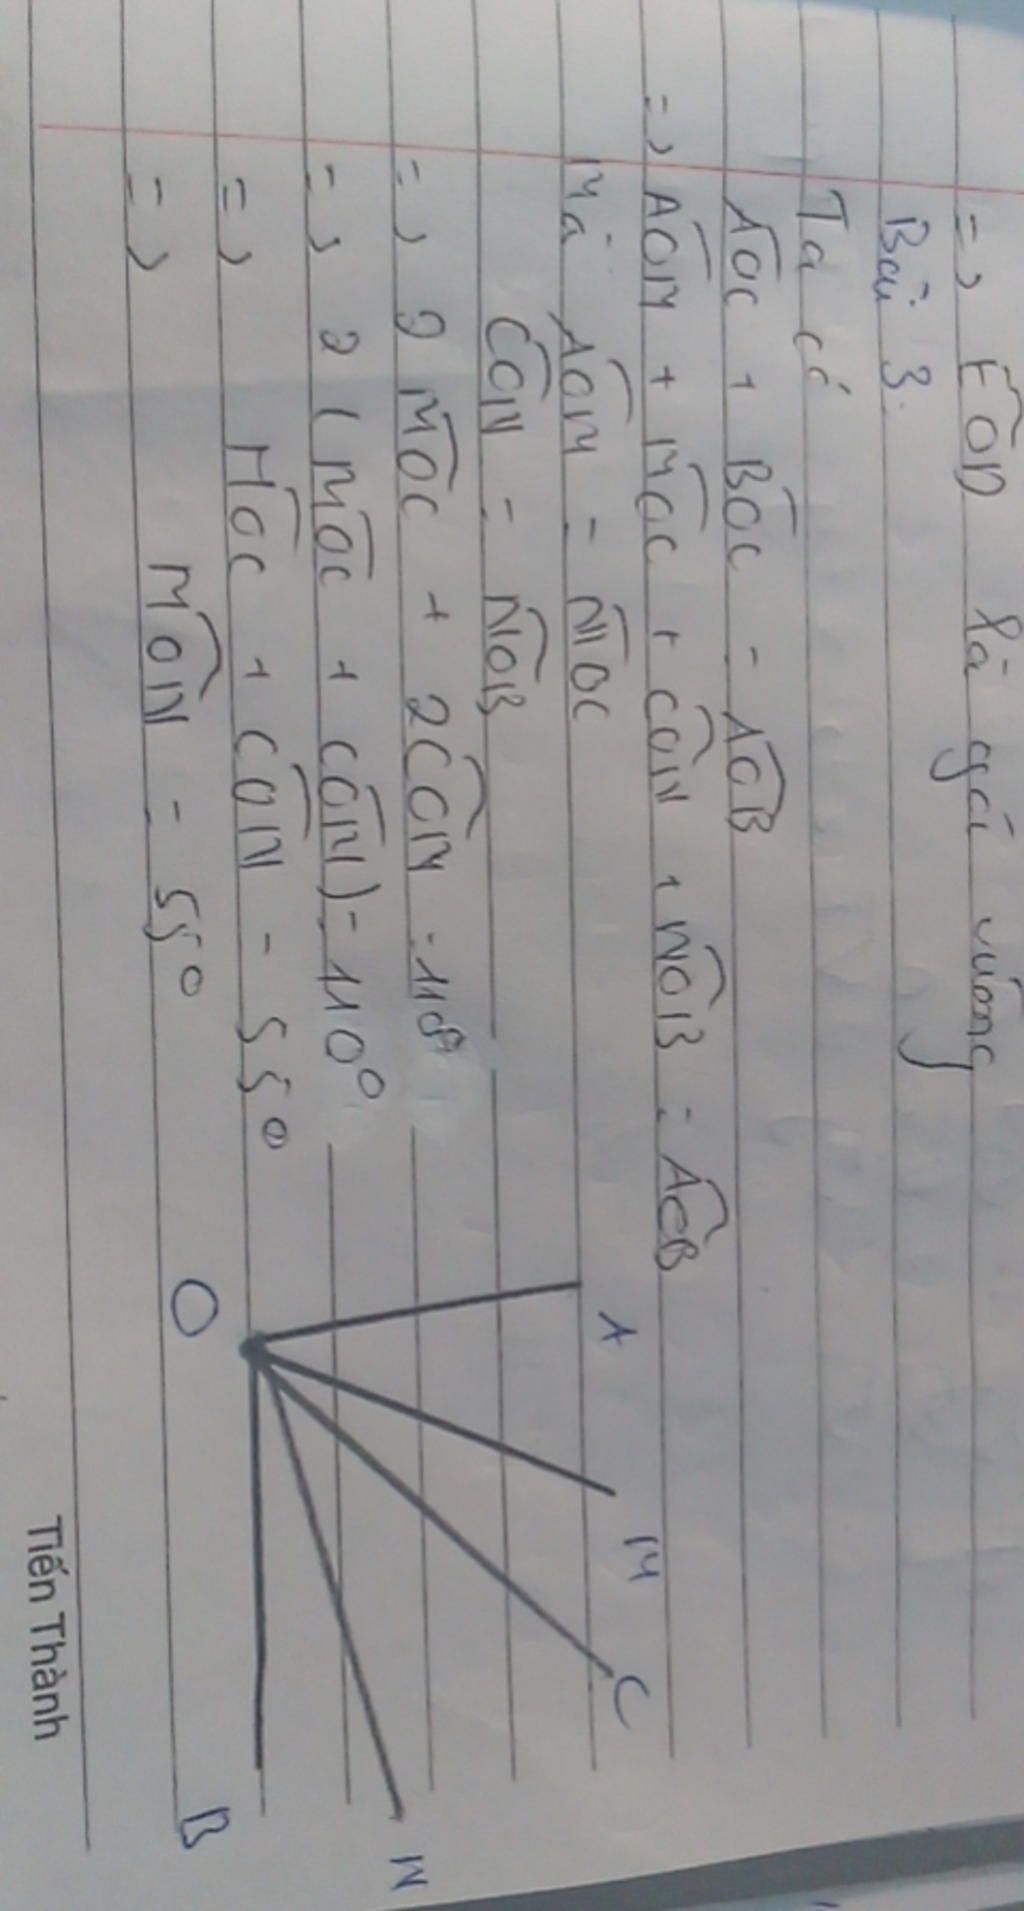 => EOD là góc vuông
Bài 3.
Ta có
AOC + BOC = AOB
=> AOM + MOC + CON + NOB = AOB
Mà AOM = MOC
CON = NOB
=> 2 MOC + 2CON = 110°
=> 2 (MOC + CON) = 110°
=> MOC + CON = 55°
=> MON = 55°
A
M
C
N
O
B
Tiến Thành